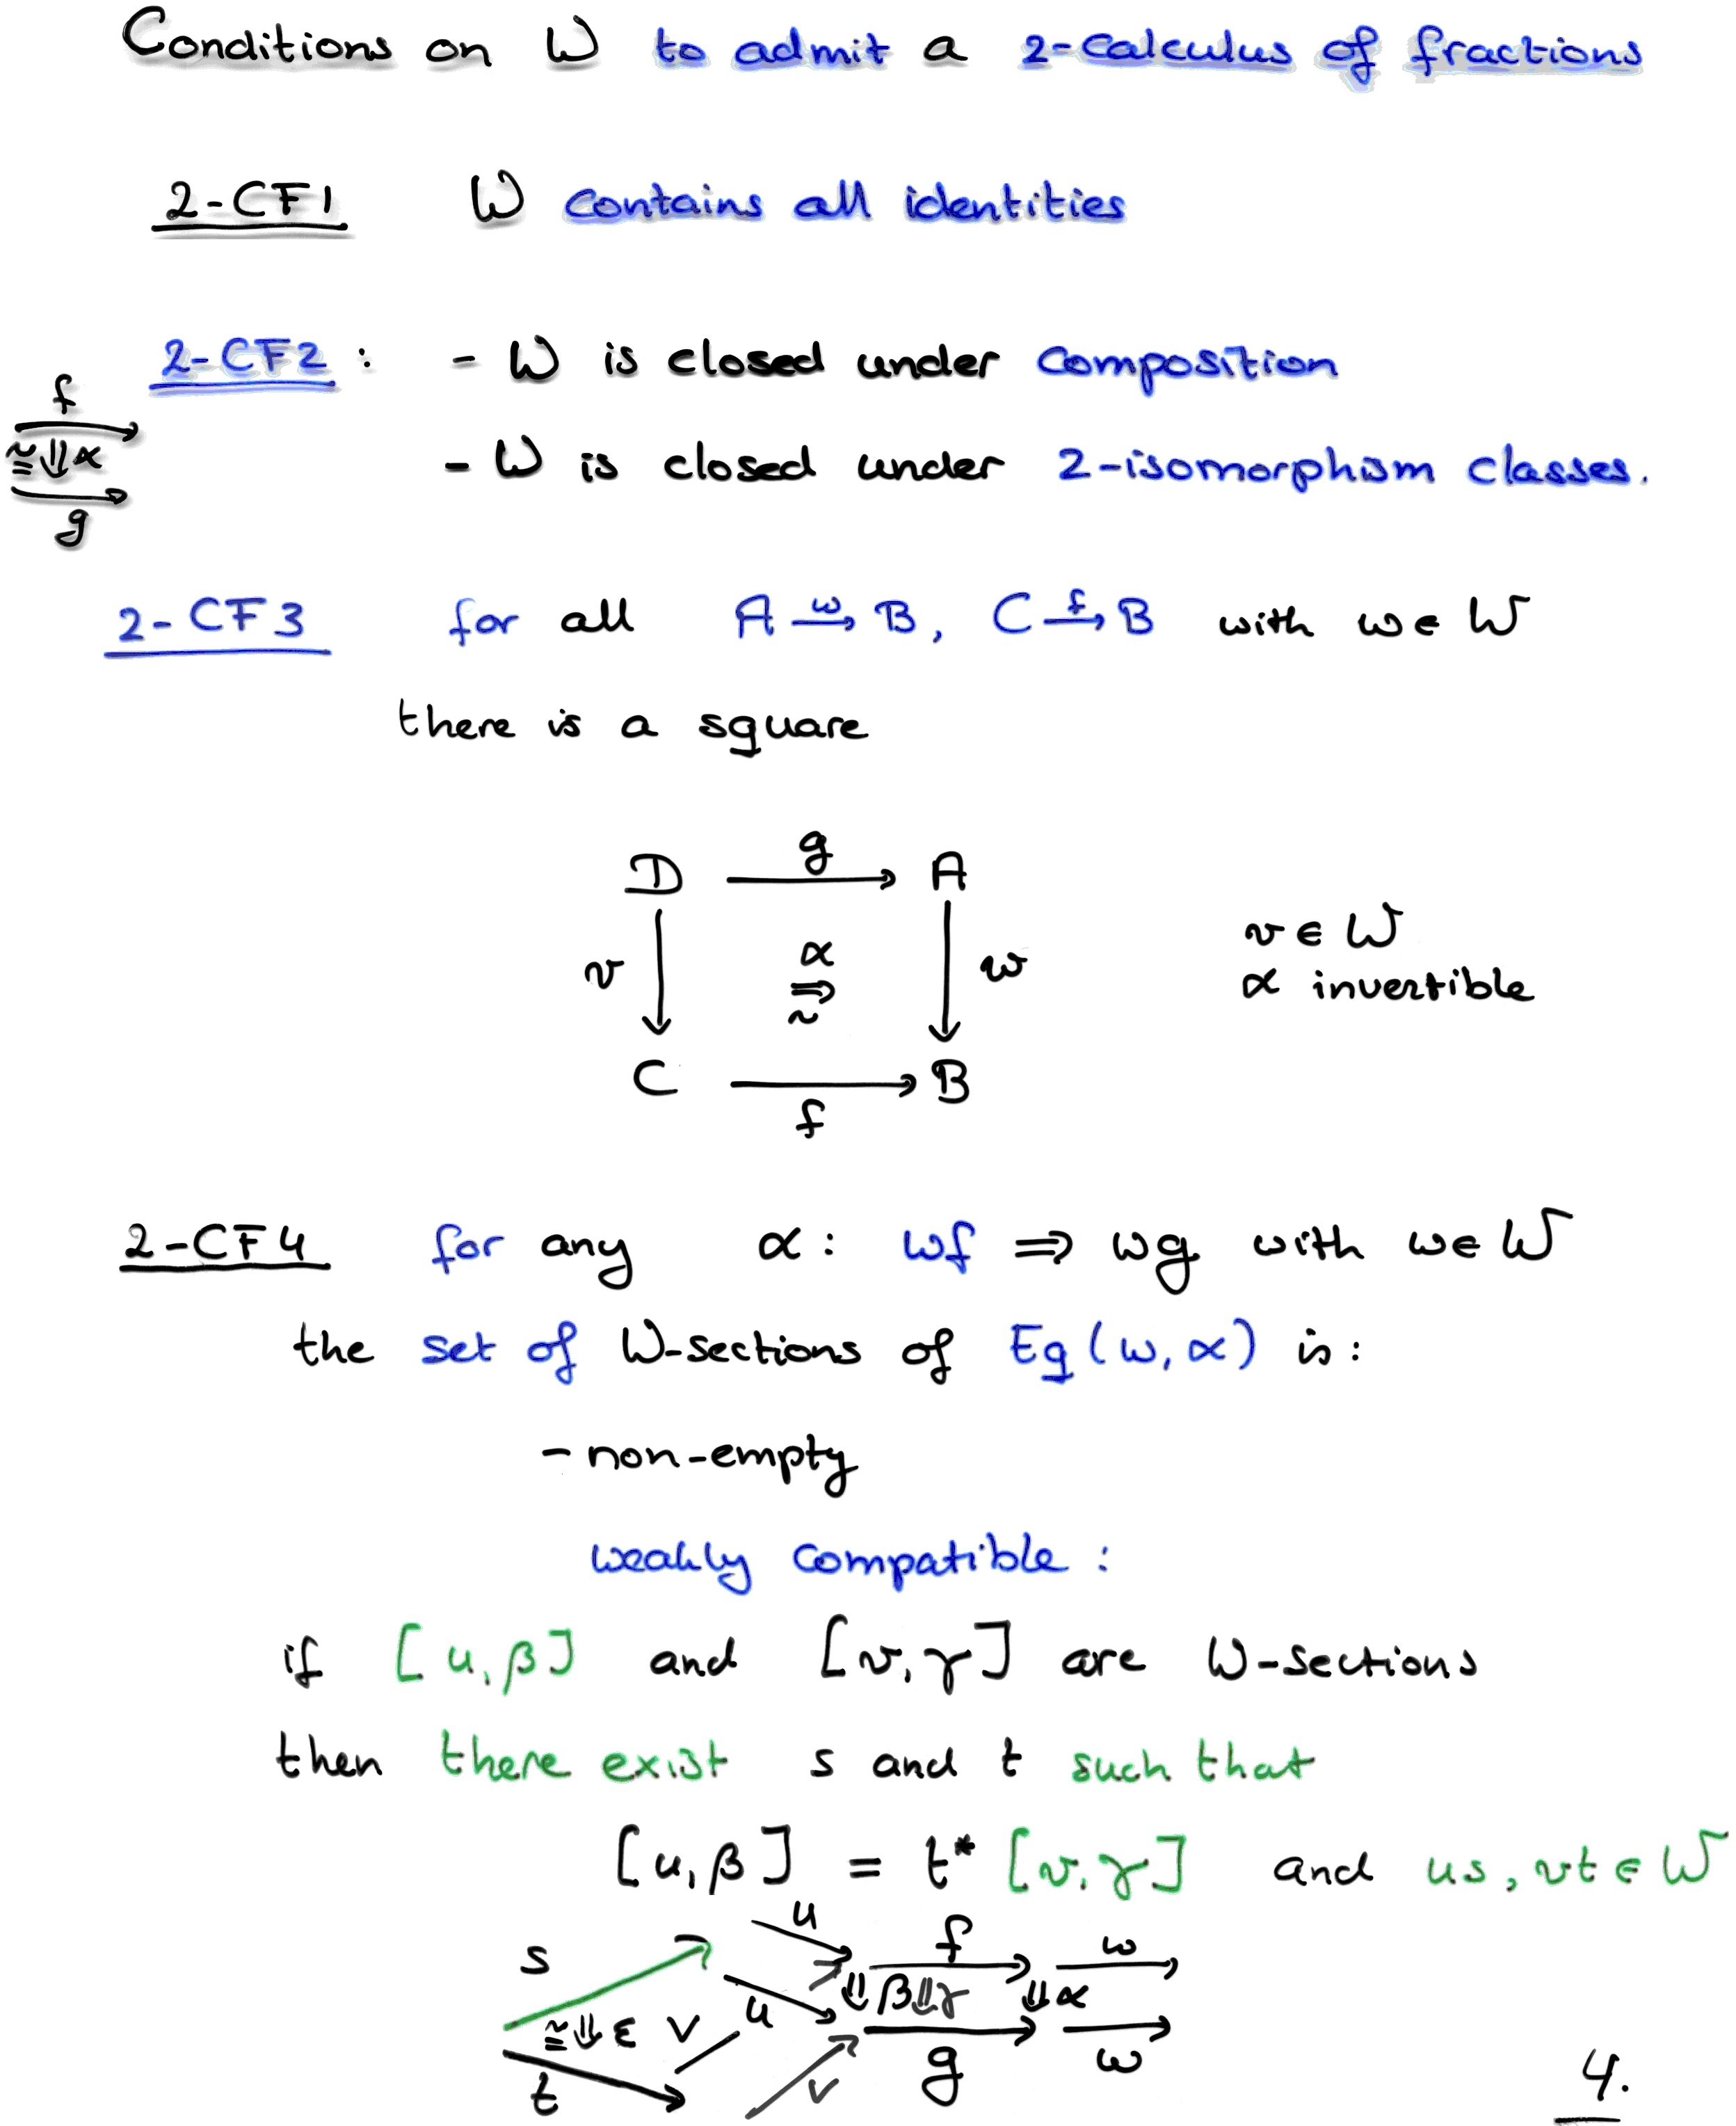 Conditions on W to admit a 2-calculus of fractions
2-CF1 W contains all identities
2-CF2 : - W is closed under composition
f
≅ ⇓ α
g
- W is closed under 2-isomorphism classes.
2-CF3 for all A →^w B, C →^f B with w ∈ W
there is a square
D g A
v α ⇒ ~ w
v ∈ W
α invertible
C f B
2-CF4 for any α : wf ⇒ wg with w ∈ W
the set of W-sections of Eq(w, α) is :
- non-empty
weakly compatible :
if [u, β] and [v, γ] are W-sections
then there exist s and t such that
[u, β] = t* [v, γ] and us, vt ∈ W
u f w
s
⇓ β ⇓ γ ⇓ α
≅ ⇓ ε v u
t v g w
4.